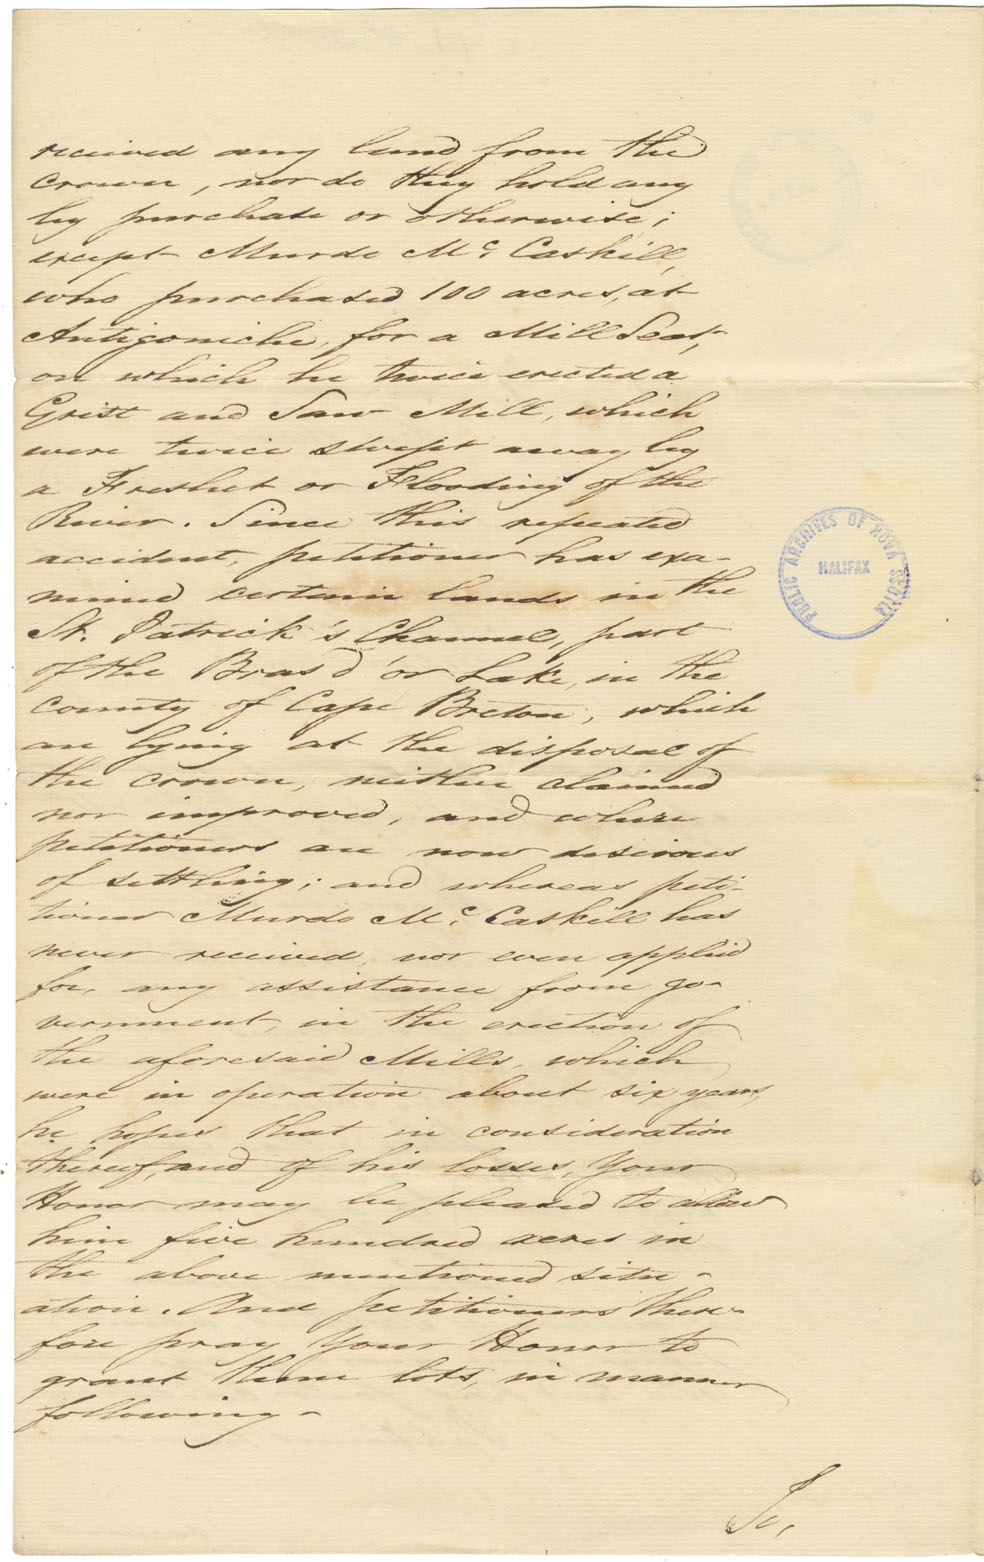 received any land from the
crown, nor do they hold any
by purchase or otherwise;
except Murdo Mc Caskill,
who purchased 100 acres, at
Antigoniche, for a Mill Seat,
on which he twice erected a
Grist and Saw Mill, which
were twice swept away by
a Freshet or Flooding of the
River. Since this repeated
accident, petitioner has exa-
mined certain lands in the
St. Patrick's Channel, part
of the Bras d'or Lake, in the
county of Cape Breton, which
are lying at the disposal of
the crown, neither claimed
nor improved, and where
petitioners are now desirous
of settling; and whereas peti-
tioner Murdo Mc. Caskill has
never received, nor even applied
for, any assistance from go-
vernment, in the erection of
the aforesaid Mills, which
were in operation about six years,
he hopes that in consideration
thereof, and of his losses, Your
Honor may be pleased to allow
him five hundred acres in
the above mentioned situ-
ation. And petitioners there-
fore pray Your Honor to
grant them lots, in manner
following-
To,
PUBLIC ARCHIVES OF NOVA SCOTIA
HALIFAX